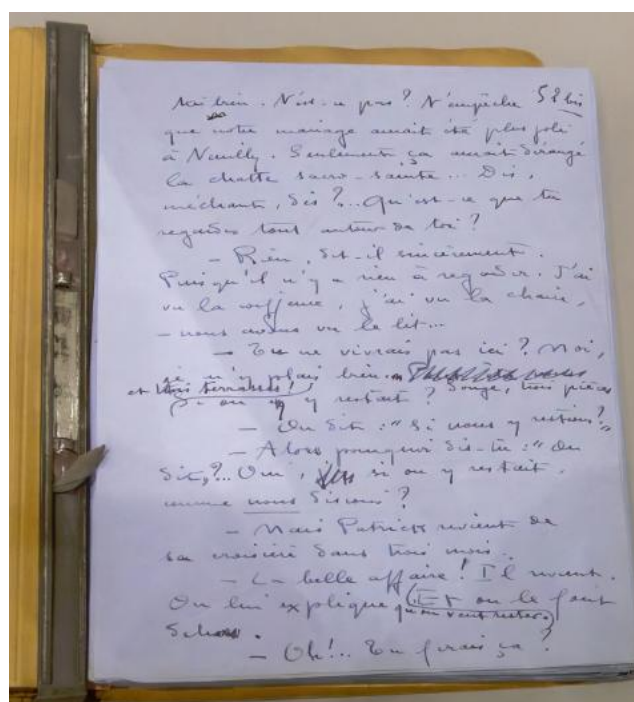 très bien. N'est-ce pas ? N'empêche 58 bis
que notre mariage aurait été plus joli
à Neuilly. Seulement ça aurait dérangé
la chatte sacro-sainte... Dis,
méchant, dis ?.. Qu'est-ce que tu
regardes tout autour de toi ?
— Rien, dit-il sincèrement.
Puisqu'il n'y a rien à regarder. J'ai
vu la coiffeuse, j'ai vu la chaise,
— nous avons vu le lit...
— Tu ne vivrais pas ici ? Moi,
je m'y plais bien.
et trois terrasses !
Si on y restait ? Songe, trois pièces
— On dit : "si nous y restions ?"
— Alors pourquoi dis-tu : "on
dit" ?.. Oui, si on y restait,
comme nous disions ?
— Mais Patrick revient de
sa croisière dans trois mois.
— La belle affaire ! Il revient.
On lui explique qu'on veut rester. Et on le fout
dehors.
— Oh !.. Tu ferais ça ?